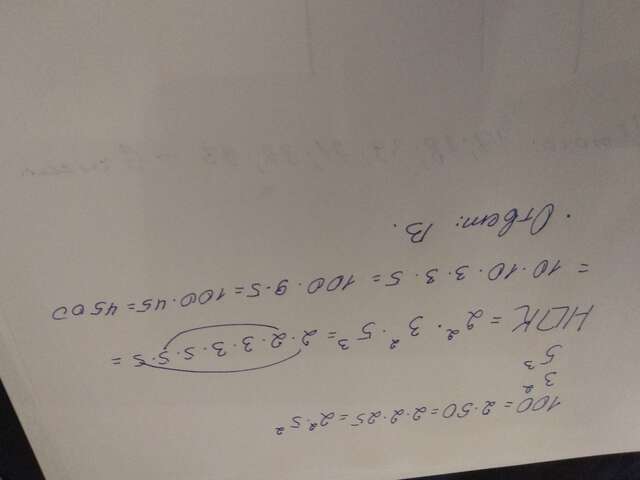 100 = 2·50 = 2·2·25 = 2²·5²
3²
5³
НОК = 2²·3²·5³ = 2·2·3·3·5·5·5 =
= 10·10·3·3·5 = 100·9·5 = 100·45 = 4500
· Ответ: В.